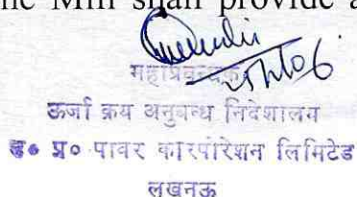 ne Mill shall provide a
महाप्रबन्धक
ऊर्जा क्रय अनुबन्ध निदेशालय
उ० प्र० पावर कारपोरेशन लिमिटेड
लखनऊ